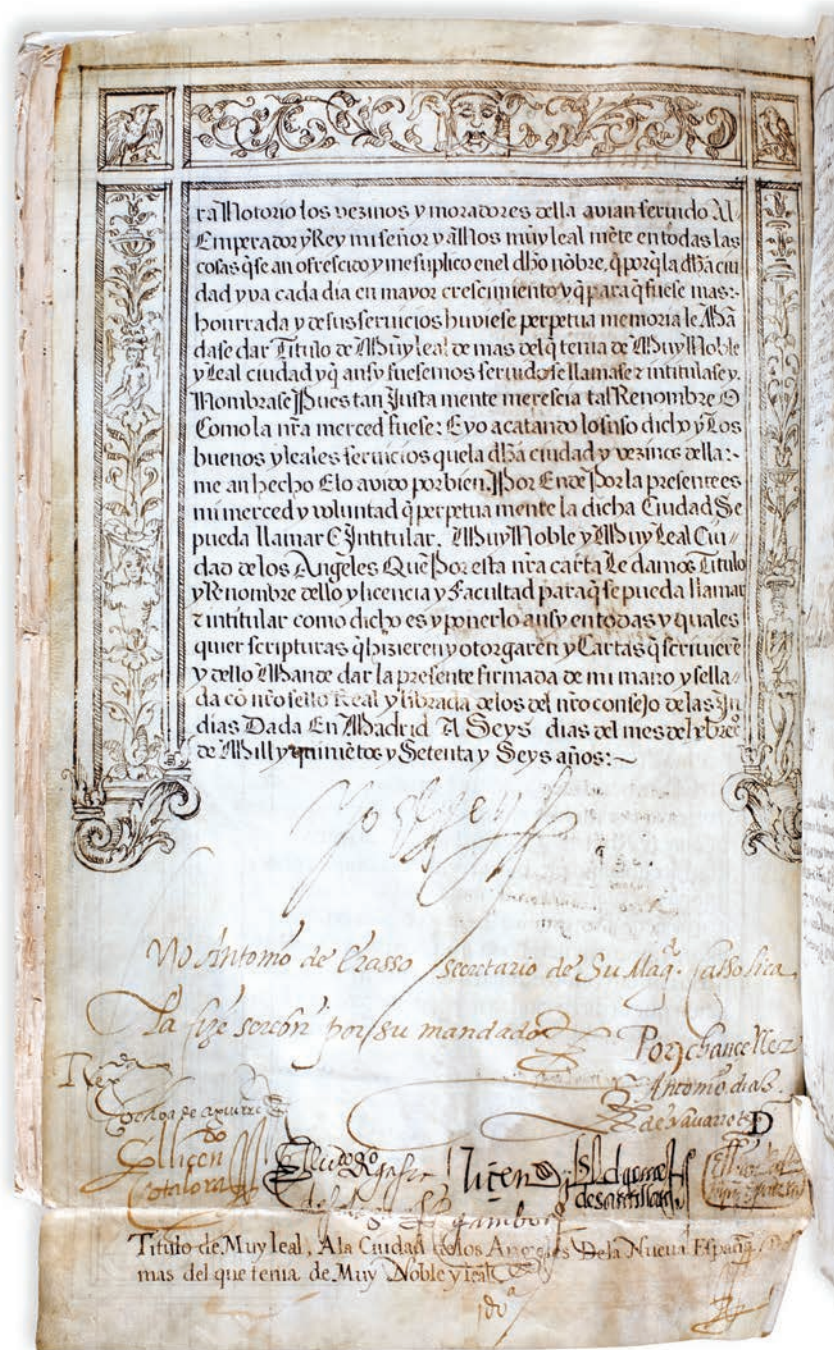 ra Notorio los vezinos y moradores della avian servido Al
Emperador y Rey mi señor y a Nos muy leal mẽte en todas las
cosas q̃ se an ofrescido y me suplico en el dho nõbre, q̃ porq̃ la dha ciu
dad yva cada dia en mayor crescimiento y q̃ para q̃ fuese mas:-
honrrada y de sus servicios huviese perpetua memoria le Mã
dase dar Titulo de Muy leal de mas del q̃ tenia de Muy Noble
y Leal ciudad y q̃ ansy fuesemos servido se llamase z intitulase y.
Nombrase Pues tan Justa mente merescia tal Renombre O
Como la nr̃a merced fuese: E yo acatando lo suso dicho y Los
buenos y leales servicios que la dha ciudad y vezinos della:~
me an hecho E lo avido por bien. Por Ende Por la presente es
mi merced y voluntad q̃ perpetua mente la dicha Ciudad Se
pueda llamar E Intitular. Muy Noble y Muy Leal Ciu-
dad de los Angeles Que Por esta nr̃a carta Le damos Titulo
y Renombre dello y licencia y Facultad para q̃ se pueda llamar
z intitular como dicho es y ponerlo ansy en todas y quales
quier scripturas q̃ hizieren y otorgaren y Cartas q̃ scrivierẽ
y dello Mande dar la presente firmada de mi mano y sella-
da cõ nr̃o sello Real y librada de los del nr̃o consejo de las In
dias Dada En Madrid A Seys dias del mes de hebrer͂o
de Mill y quiniẽtos y Setenta y Seys años:~
Yo El Rey
Yo Antonio de Erasso secretario de Su Mag.ᵈ Catholica
La fize screbir por su mandado
Por chanceller
Antonio diaz
Ochoa de aguirre
de navarrete D
El licen.ᵈᵒ
otalora
gasca
licen
gomez
de santillan
gamboa
Titulo de Muy leal, A la Ciudad de los Angeles De la Nueva España
mas del que tenia de Muy Noble y leal